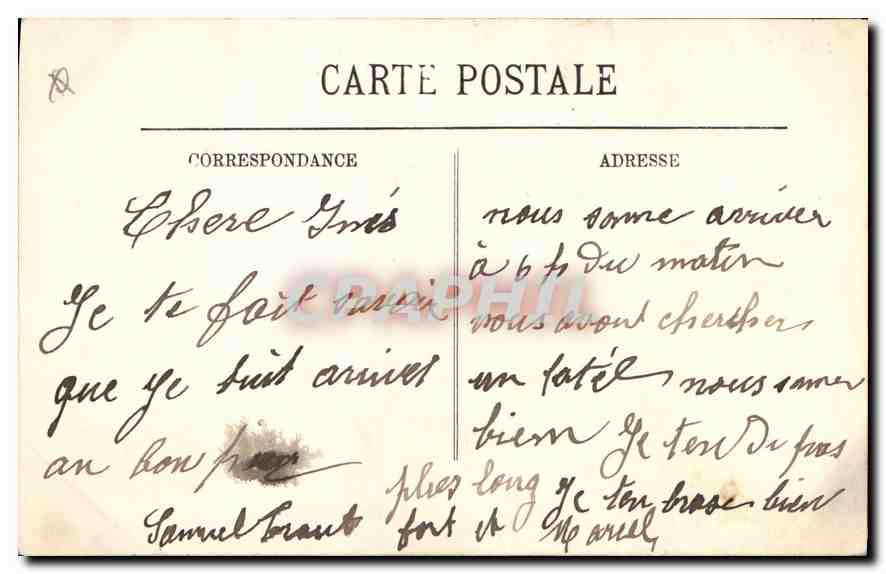 CARTE POSTALE
CORRESPONDANCE
Chere Inés
Je te fait savoir
que je suit arrivet
an bon
ADRESSE
nous some arriver
à 6 h du matin
nous avont chercher
un hotél nous somer
bien Je ten di pas
plus long Je ten brase bien
Samuel fort et Marcel
CPARHN